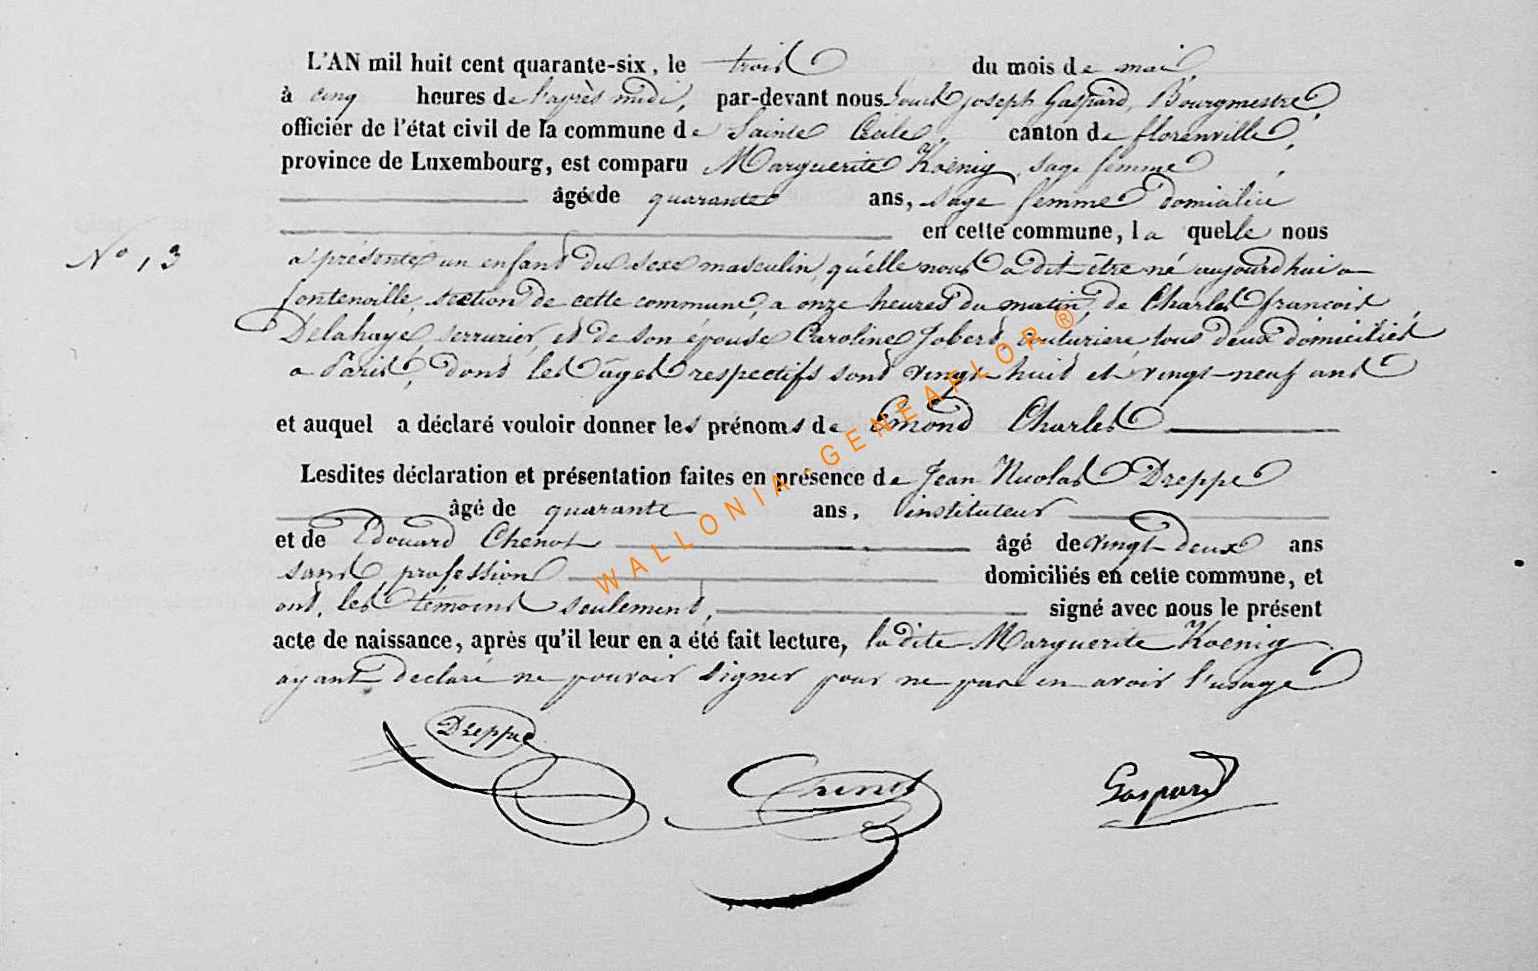 L'AN mil huit cent quarante-six, le trois du mois de mai,
à cinq heures de l'après midi, par-devant nous Louis joseph Gaspard, Bourgmestre,
officier de l'état civil de la commune de Sainte Cécile, canton de florenville,
province de Luxembourg, est comparu Marguerite Koenig, sage femme,
âgée de quarante ans, sage femme domiciliée
en cette commune, la quelle nous
N° 13
a présenté un enfant du sexe masculin, qu'elle nous a dit être né aujourd'hui a
fontenoille, section de cette commune, a onze heures du matin, de Charles françois
Delahaye, serrurier, et de son épouse Caroline Jobert, couturière, tous deux domiciliés
a Paris, dont les âges respectifs sont vingt-huit et vingt-neuf ans
et auquel a déclaré vouloir donner les prénoms de Emond Charles
Lesdites déclaration et présentation faites en présence de Jean Nicolas Dreppe
âgé de quarante ans, instituteur
et de Edouard Chenot âgé de vingt deux ans
sans profession domiciliés en cette commune, et
ont, les témoins seulement, signé avec nous le présent
acte de naissance, après qu'il leur en a été fait lecture, la dite Marguerite Koenig
ayant déclaré ne pouvoir signer pour ne pas en avoir l'usage
Dreppe
Chenot
Gaspard
WALLONIA-GENEAFLOR ®